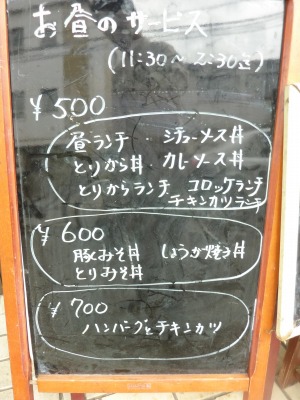 お昼のサービス
(11:30〜2:30迄)
¥500
昼ランチ シチューメス丼
とりから丼 カレーメス丼
とりからランチ コロッケランチ
チキンカツランチ
¥600
豚みそ丼 しょうが焼き丼
とりみそ丼
¥700
ハンバーグとチキンカツ